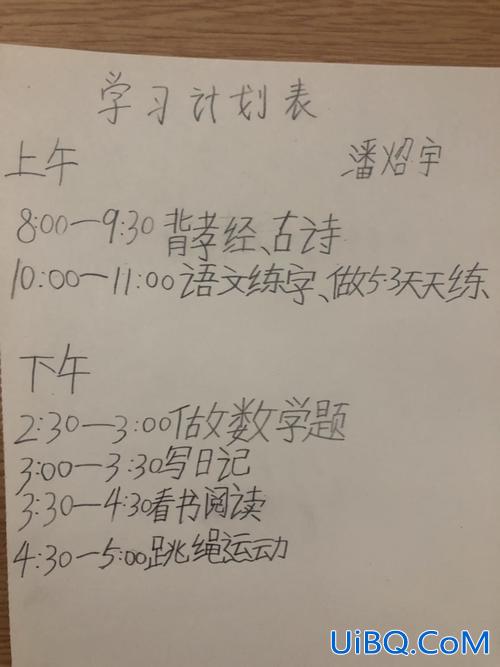 学习计划表
上午 潘炤宇
8:00—9:30背孝经、古诗
10:00—11:00语文练字、做5·3天天练
下午
2:30—3:00做数学题
3:00—3:30写日记
3:30—4:30看书阅读
4:30—5:00跳绳运动
UiBQ.CoM